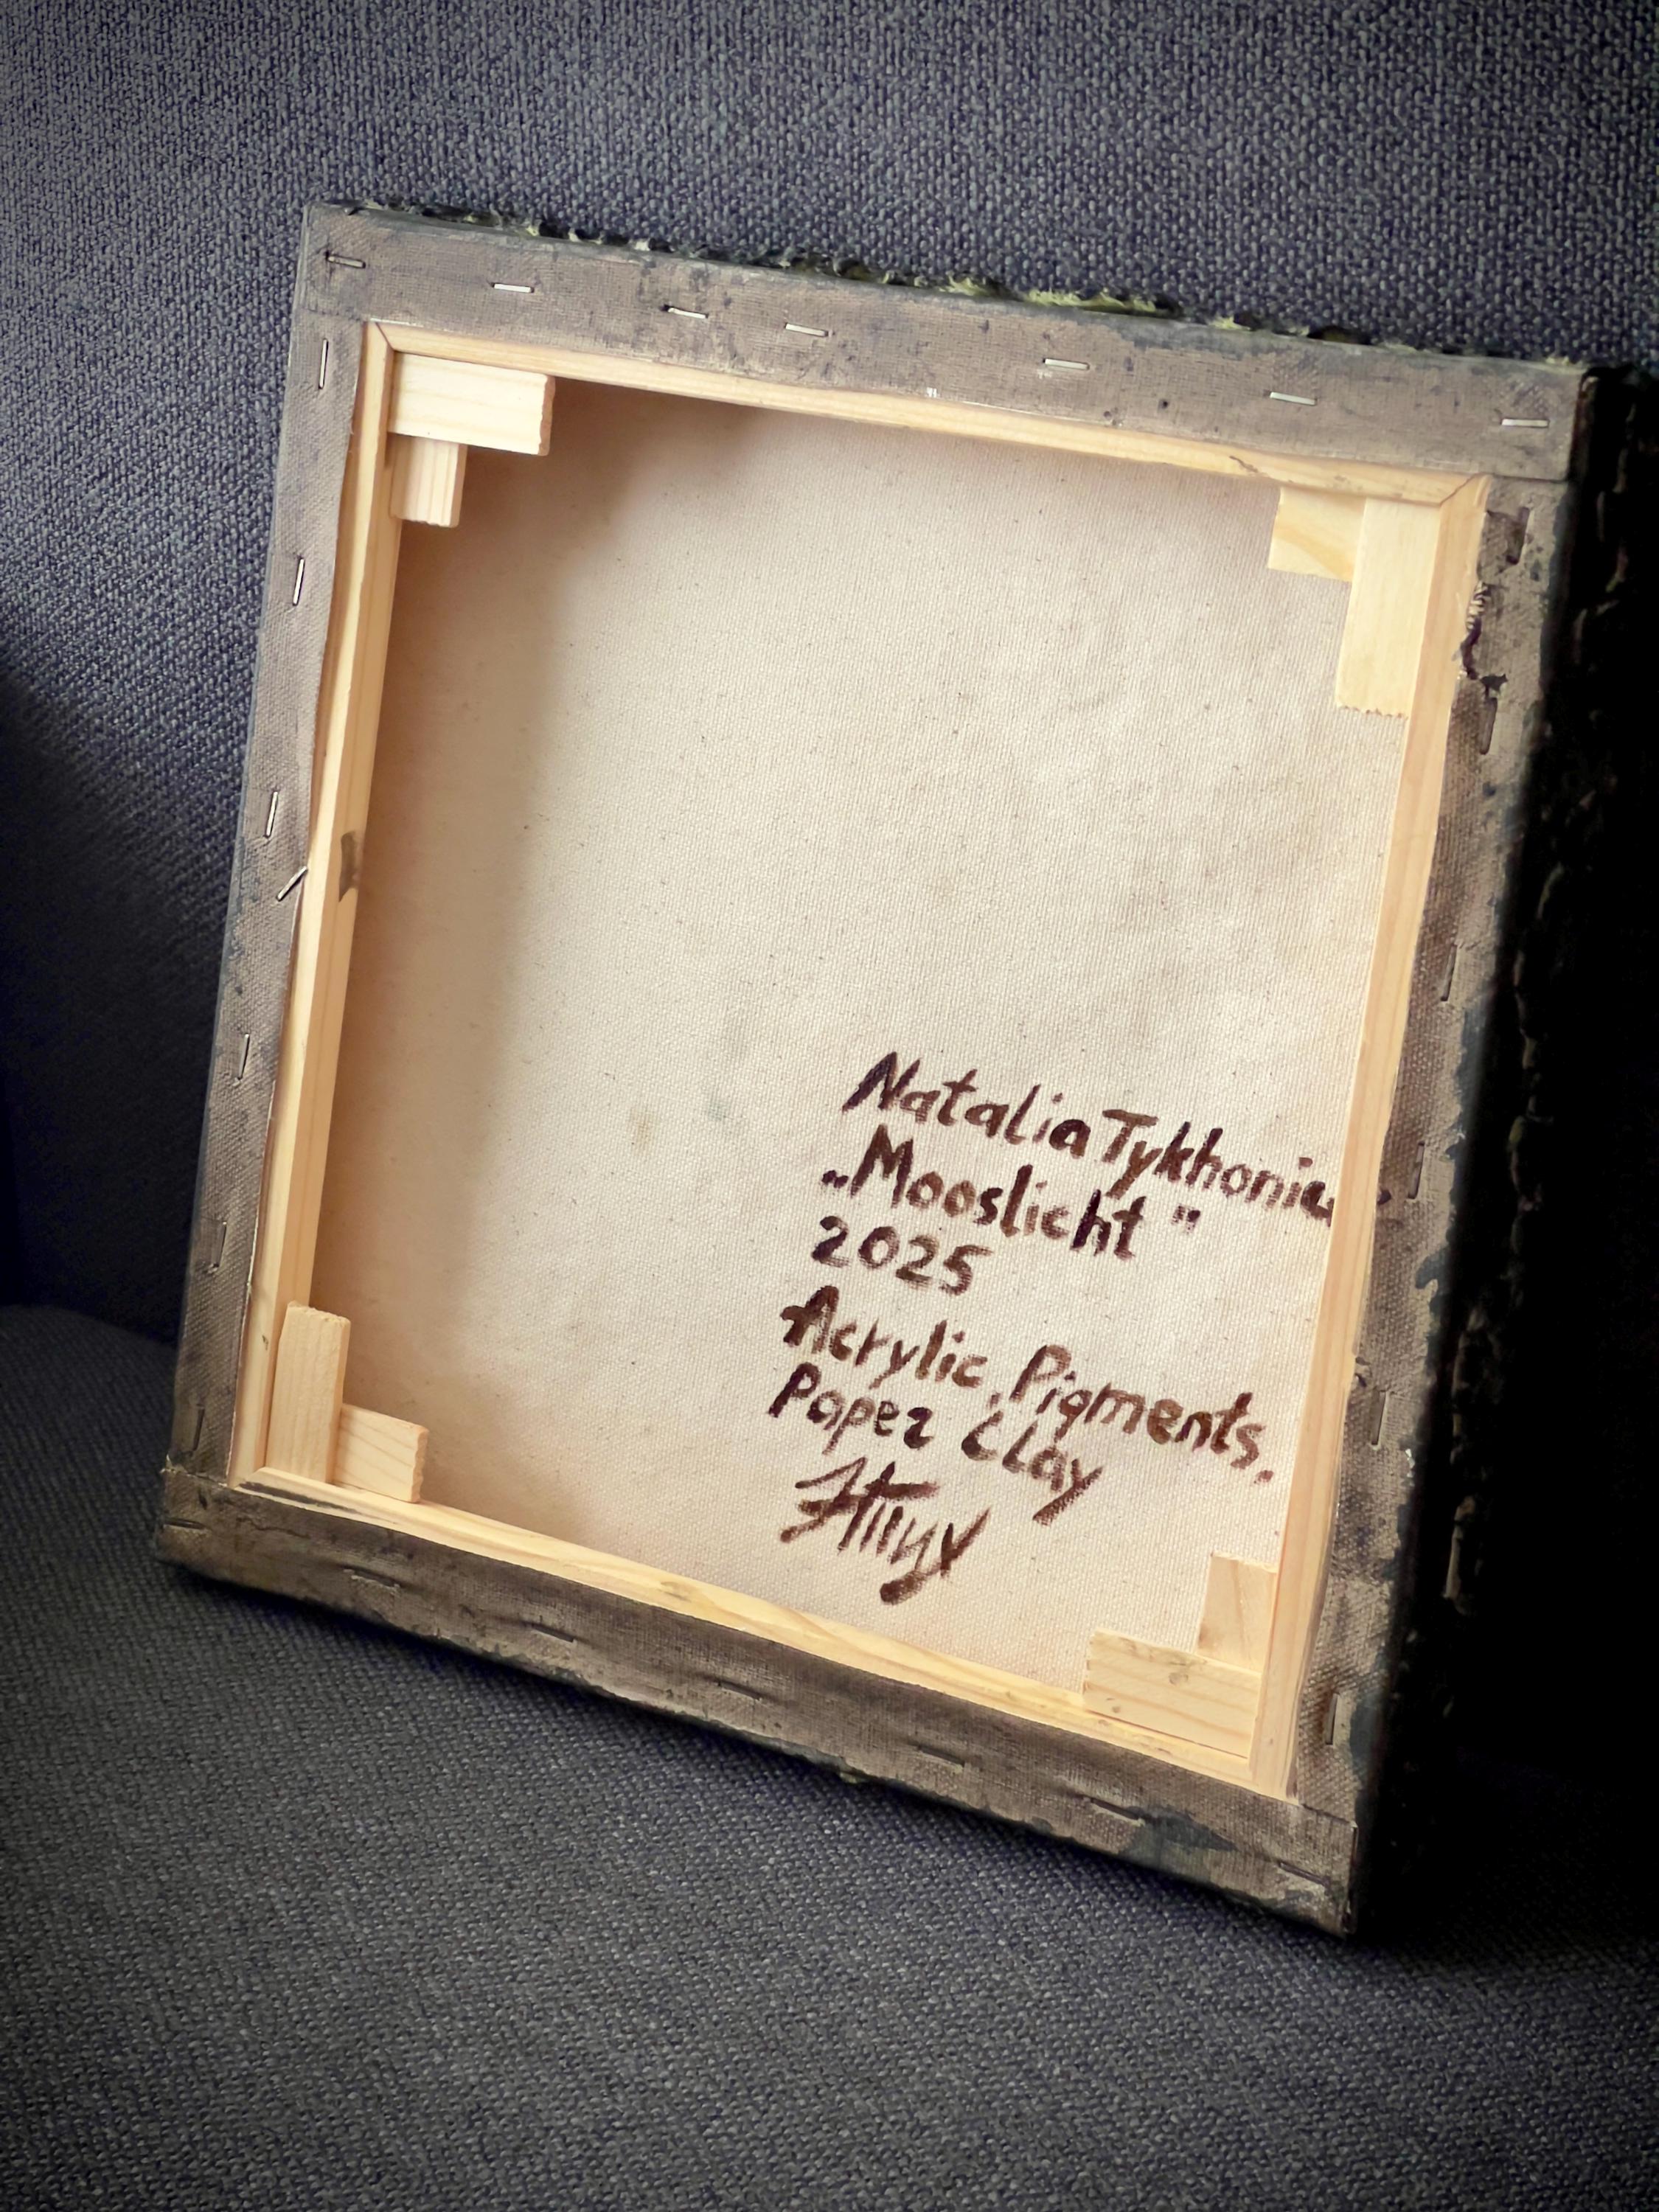 Natalia
„Mooslicht"
2025
Acrylic, Pigments,
Paper Clay